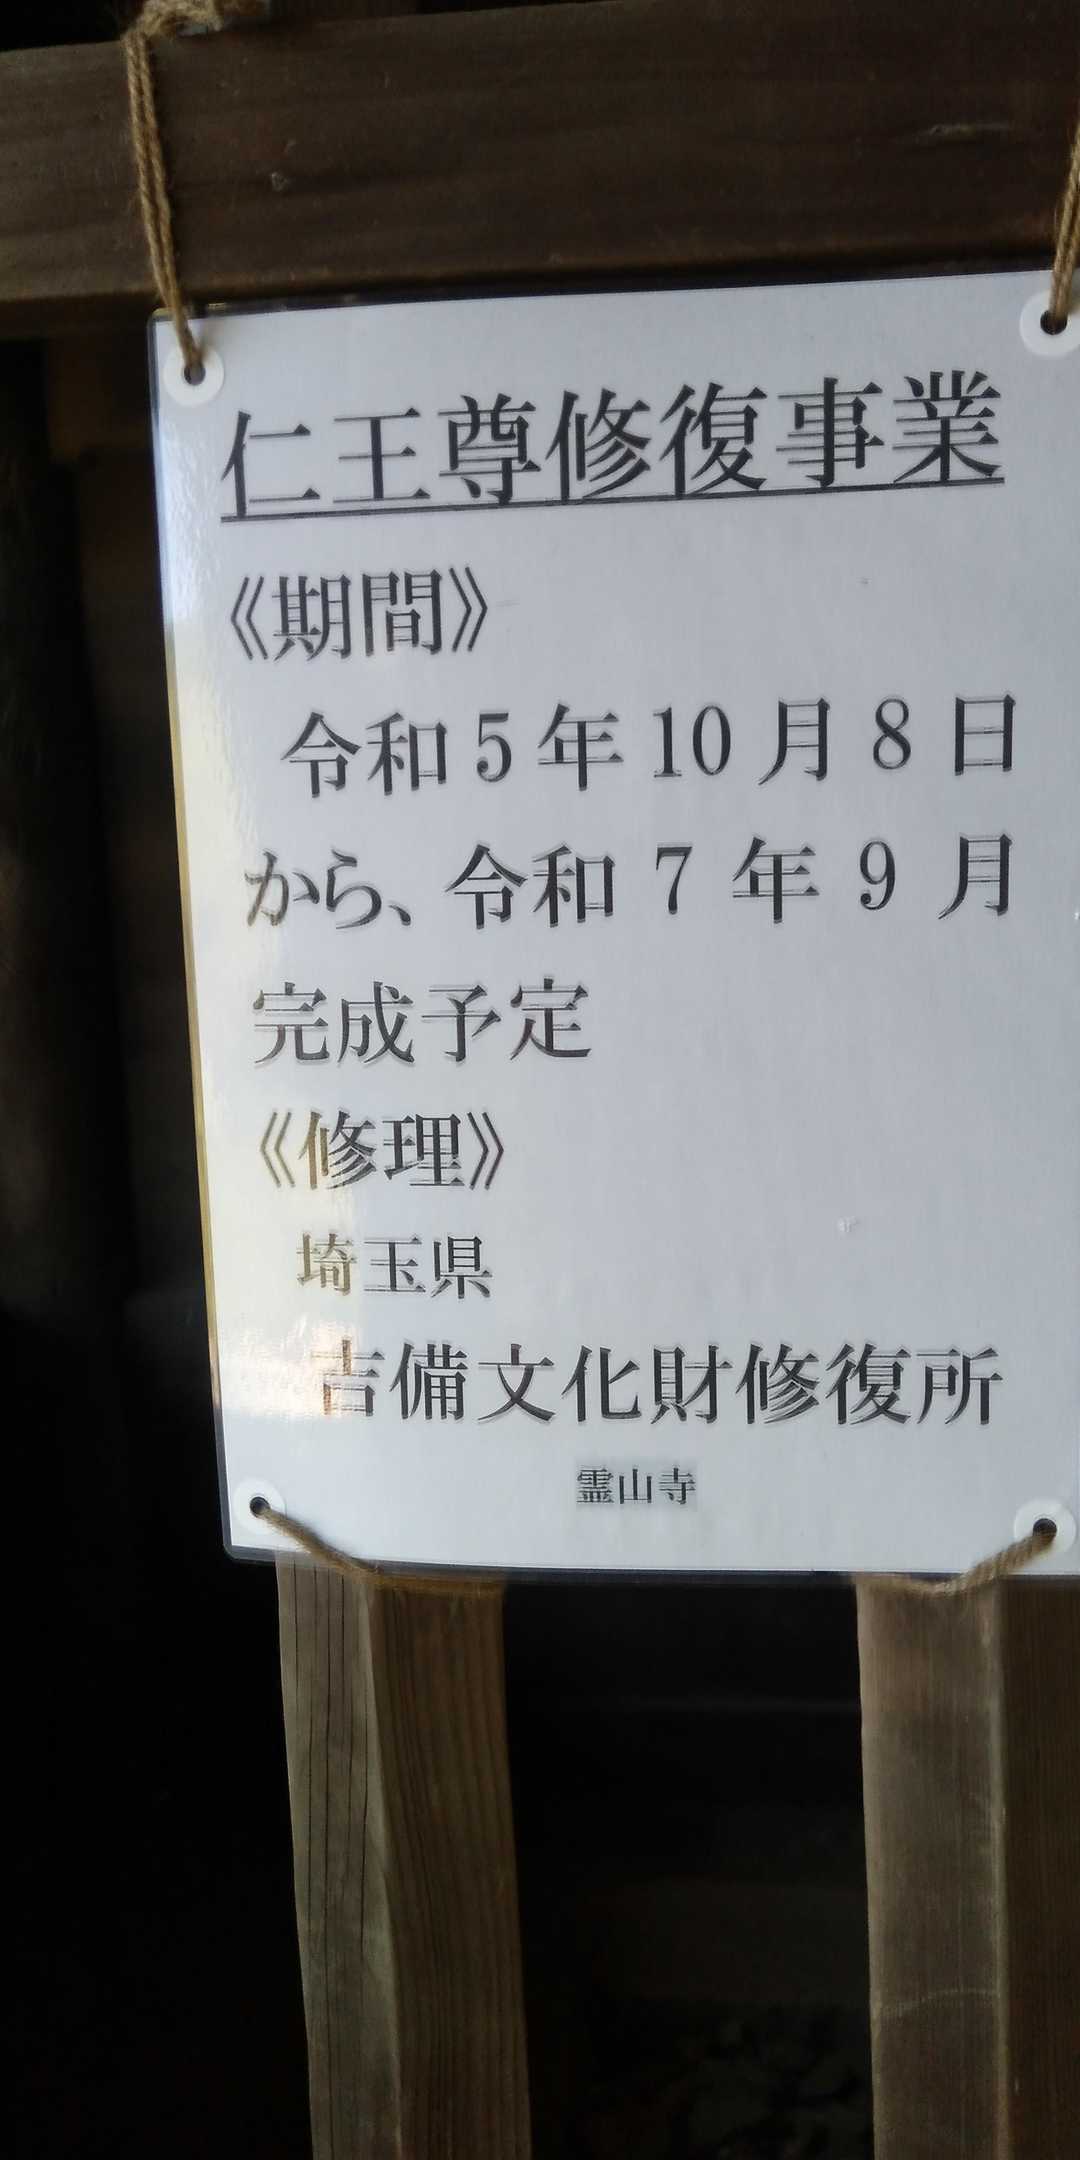 仁王尊修復事業
《期間》
令和5年10月8日
から、令和7年9月
完成予定
《修理》
埼玉県
吉備文化財修復所
霊山寺